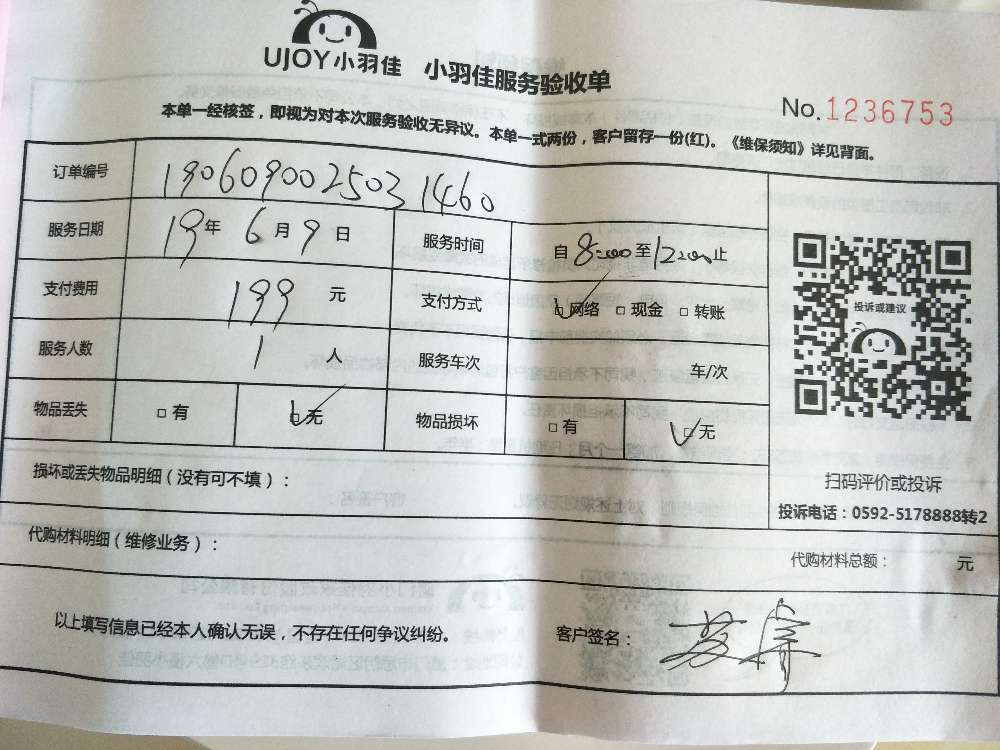 UJOY小羽佳 小羽佳服务验收单
No.1236753
本单一经核签，即视为对本次服务验收无异议。本单一式两份，客户留存一份(红)。《维保须知》详见背面。
订单编号 190609002503 1460
服务日期 19年 6月 9日 服务时间 自8:00至12:00止
支付费用 199 元 支付方式 □网络 □现金 □转账
服务人数 1 人 服务车次 车/次
物品丢失 □有 □无 物品损坏 □有 □无
投诉或建议
扫码评价或投诉
投诉电话：0592-5178888转2
损坏或丢失物品明细（没有可不填）：
代购材料明细（维修业务）： 代购材料总额： 元
以上填写信息已经本人确认无误，不存在任何争议纠纷。 客户签名：